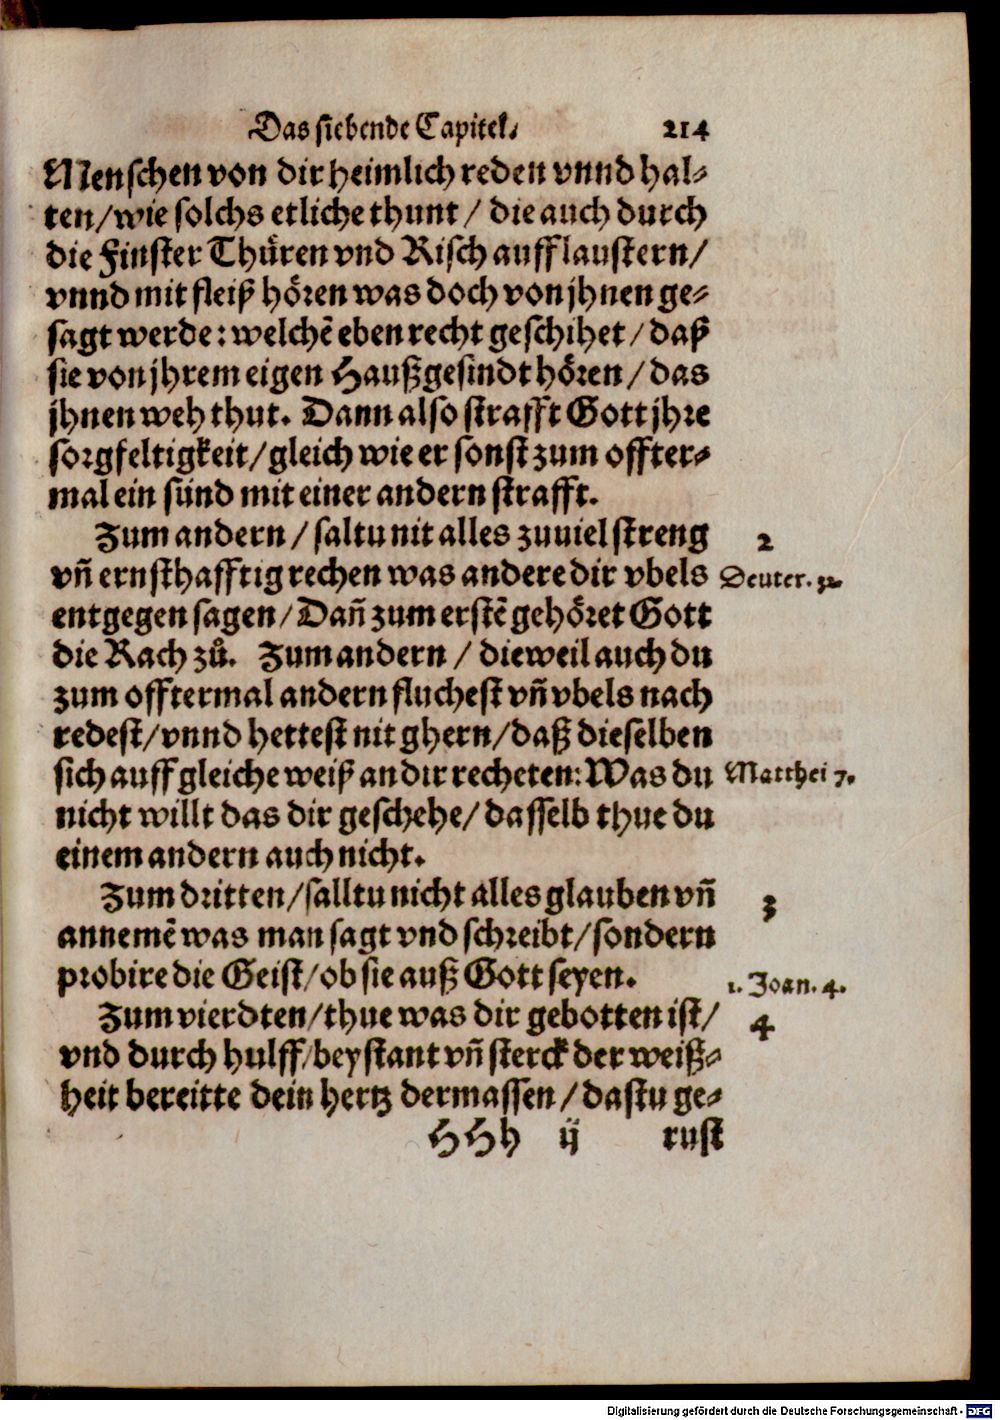 Das siebende Capitel. 214
Menschen von dir heimlich reden vnnd hal⸗
ten/wie solchs etliche thunt/ die auch durch
die Finster Thüren vnd Risch aufflaustern/
vnnd mit fleiß hören was doch von jhnen ge⸗
sagt werde: welchē eben recht geschihet/ daß
sie von jhrem eigen Haußgesindt hören/ das
jhnen weh thut. Dann also strafft Gott jhre
sorgfeltigkeit/gleich wie er sonst zum offter⸗
mal ein sünd mit einer andern strafft.
Zum andern/ saltu nit alles zuuiel streng
2
vñ ernsthafftig rechen was andere dir vbels
Deuter. 32.
entgegen sagen/ Dañ zum erstē gehöret Gott
die Rach zů. Zum andern/ dieweil auch du
zum offtermal andern fluchest vñ vbels nach
redest/vnnd hettest nit ghern/daß dieselben
sich auff gleiche weiß an dir recheten: Was du
Matthei 7.
nicht willt das dir geschehe/ dasselb thue du
einem andern auch nicht.
Zum dritten/salltu nicht alles glauben vñ
3
annemē was man sagt vnd schreibt/sondern
probire die Geist/ob sie auß Gott seyen.
1. Joan. 4.
Zum vierdten/thue was dir gebotten ist/
4
vnd durch hulff/beystant vñ sterck der weiß⸗
heit bereitte dein hertz dermassen/ dastu ge⸗
HHh ij rust
Digitalisierung gefördert durch die Deutsche Forschungsgemeinschaft - DFG